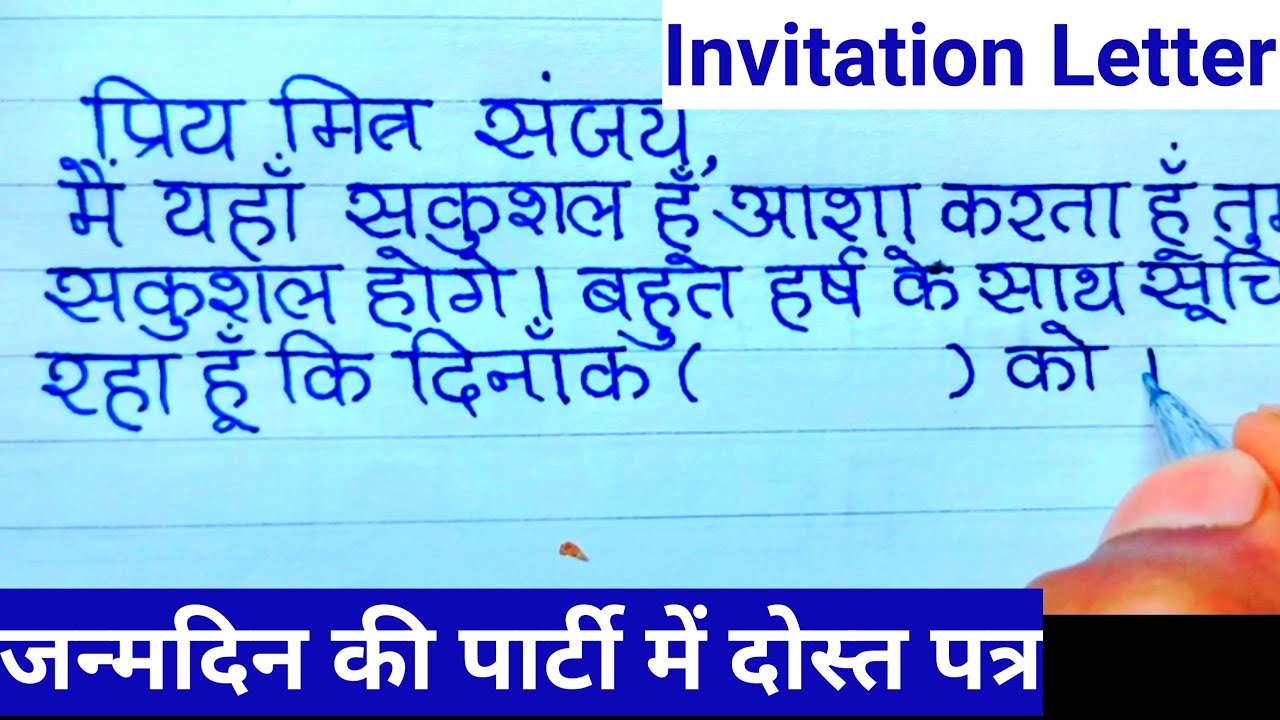 Invitation Letter
प्रिय मित्र संजय,
मैं यहाँ सकुशल हूँ, आशा करता हूँ
सकुशल होगे। बहुत हर्ष के साथ
रहा हूँ कि दिनाँक (          ) को
जन्मदिन की पार्टी में दोस्त पत्र